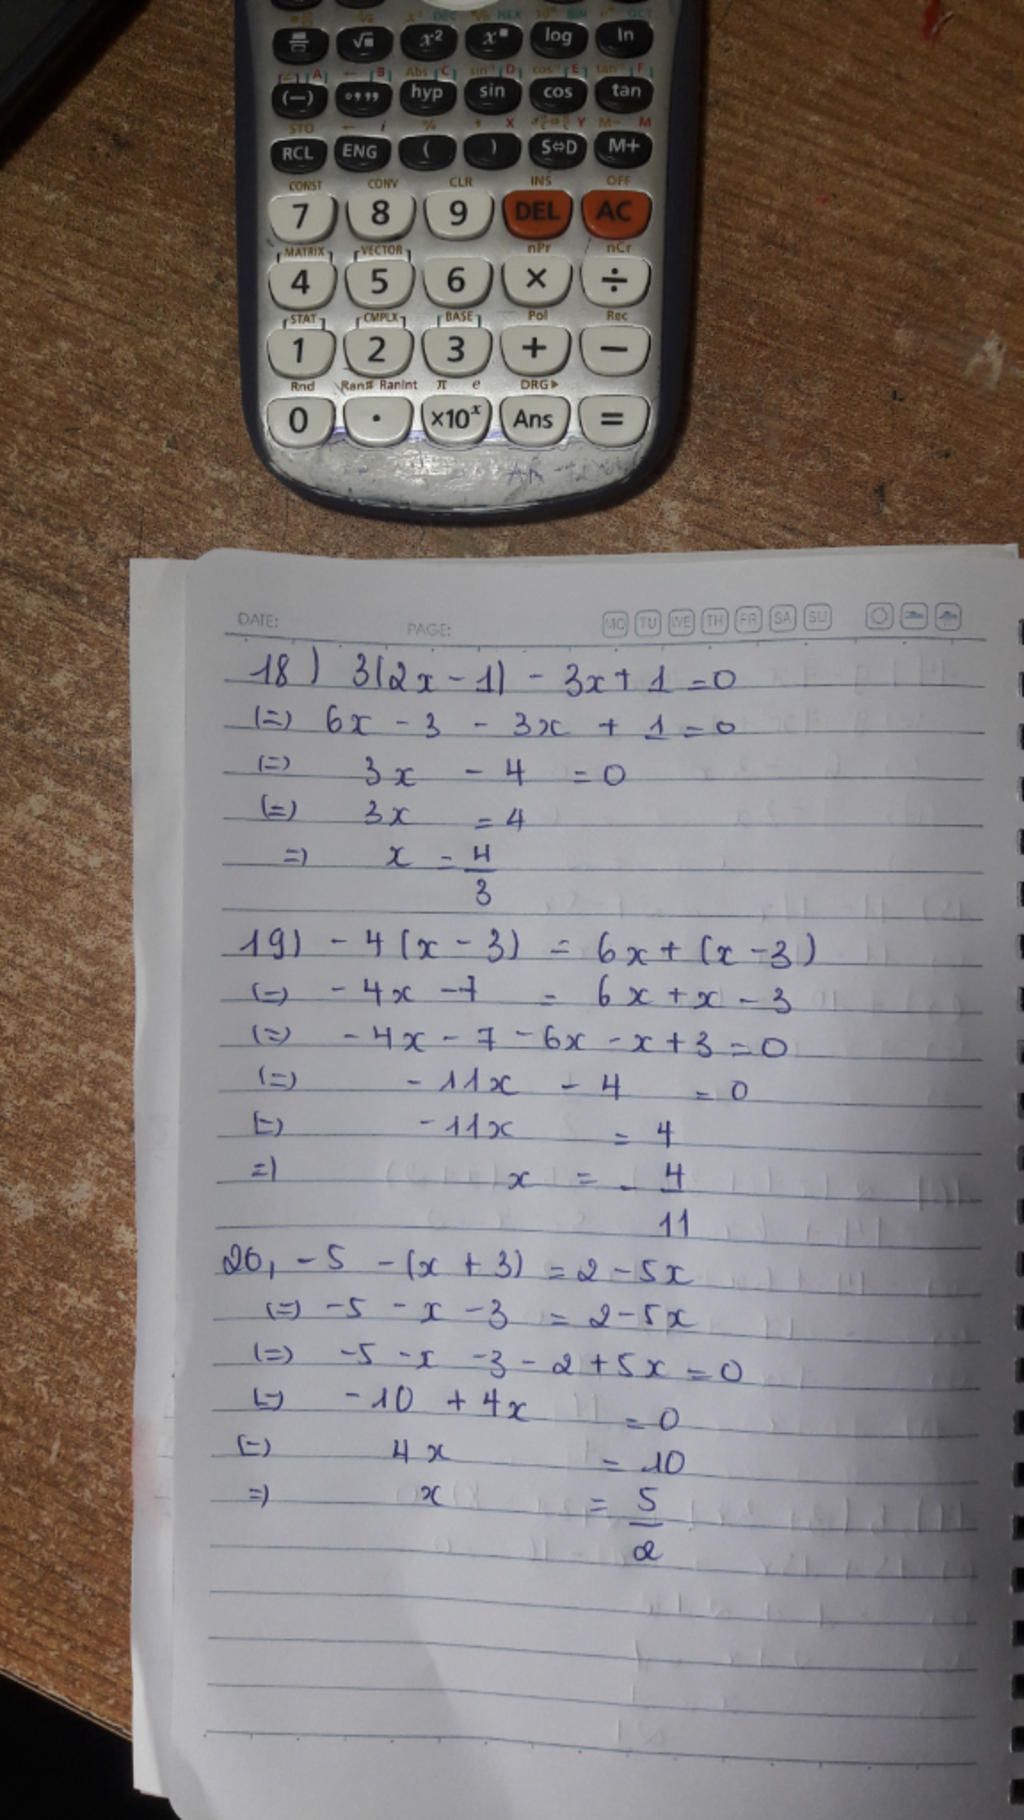 x² DEC HEX BIN OCT
√▪ x² x▪ log ln
A B Abs C sin⁻¹ D cos⁻¹ E tan⁻¹ F
(−) °,,, hyp sin cos tan
STO ← i % , X Y M− M
RCL ENG ( ) S⇔D M+
CONST CONV CLR INS OFF
7 8 9 DEL AC
MATRIX VECTOR nPr nCr
4 5 6 × ÷
STAT CMPLX BASE Pol Rec
1 2 3 + −
Rnd Ran# RanInt π e DRG▶
0 . ×10ˣ Ans =
DATE: PAGE: MO TU WE TH FR SA SU
18) 3(2x - 1) - 3x + 1 = 0
(=) 6x - 3 - 3x + 1 = 0
(=) 3x - 4 = 0
(=) 3x = 4
=) x = 4/3
19) - 4(x - 3) = 6x + (x - 3)
(=) - 4x - 7 = 6x + x - 3
(=) - 4x - 7 - 6x - x + 3 = 0
(=) - 11x - 4 = 0
(=) - 11x = 4
=) x = - 4/11
20, - 5 - (x + 3) = 2 - 5x
(=) - 5 - x - 3 = 2 - 5x
(=) - 5 - x - 3 - 2 + 5x = 0
(=) - 10 + 4x = 0
(=) 4x = 10
=) x = 5/2